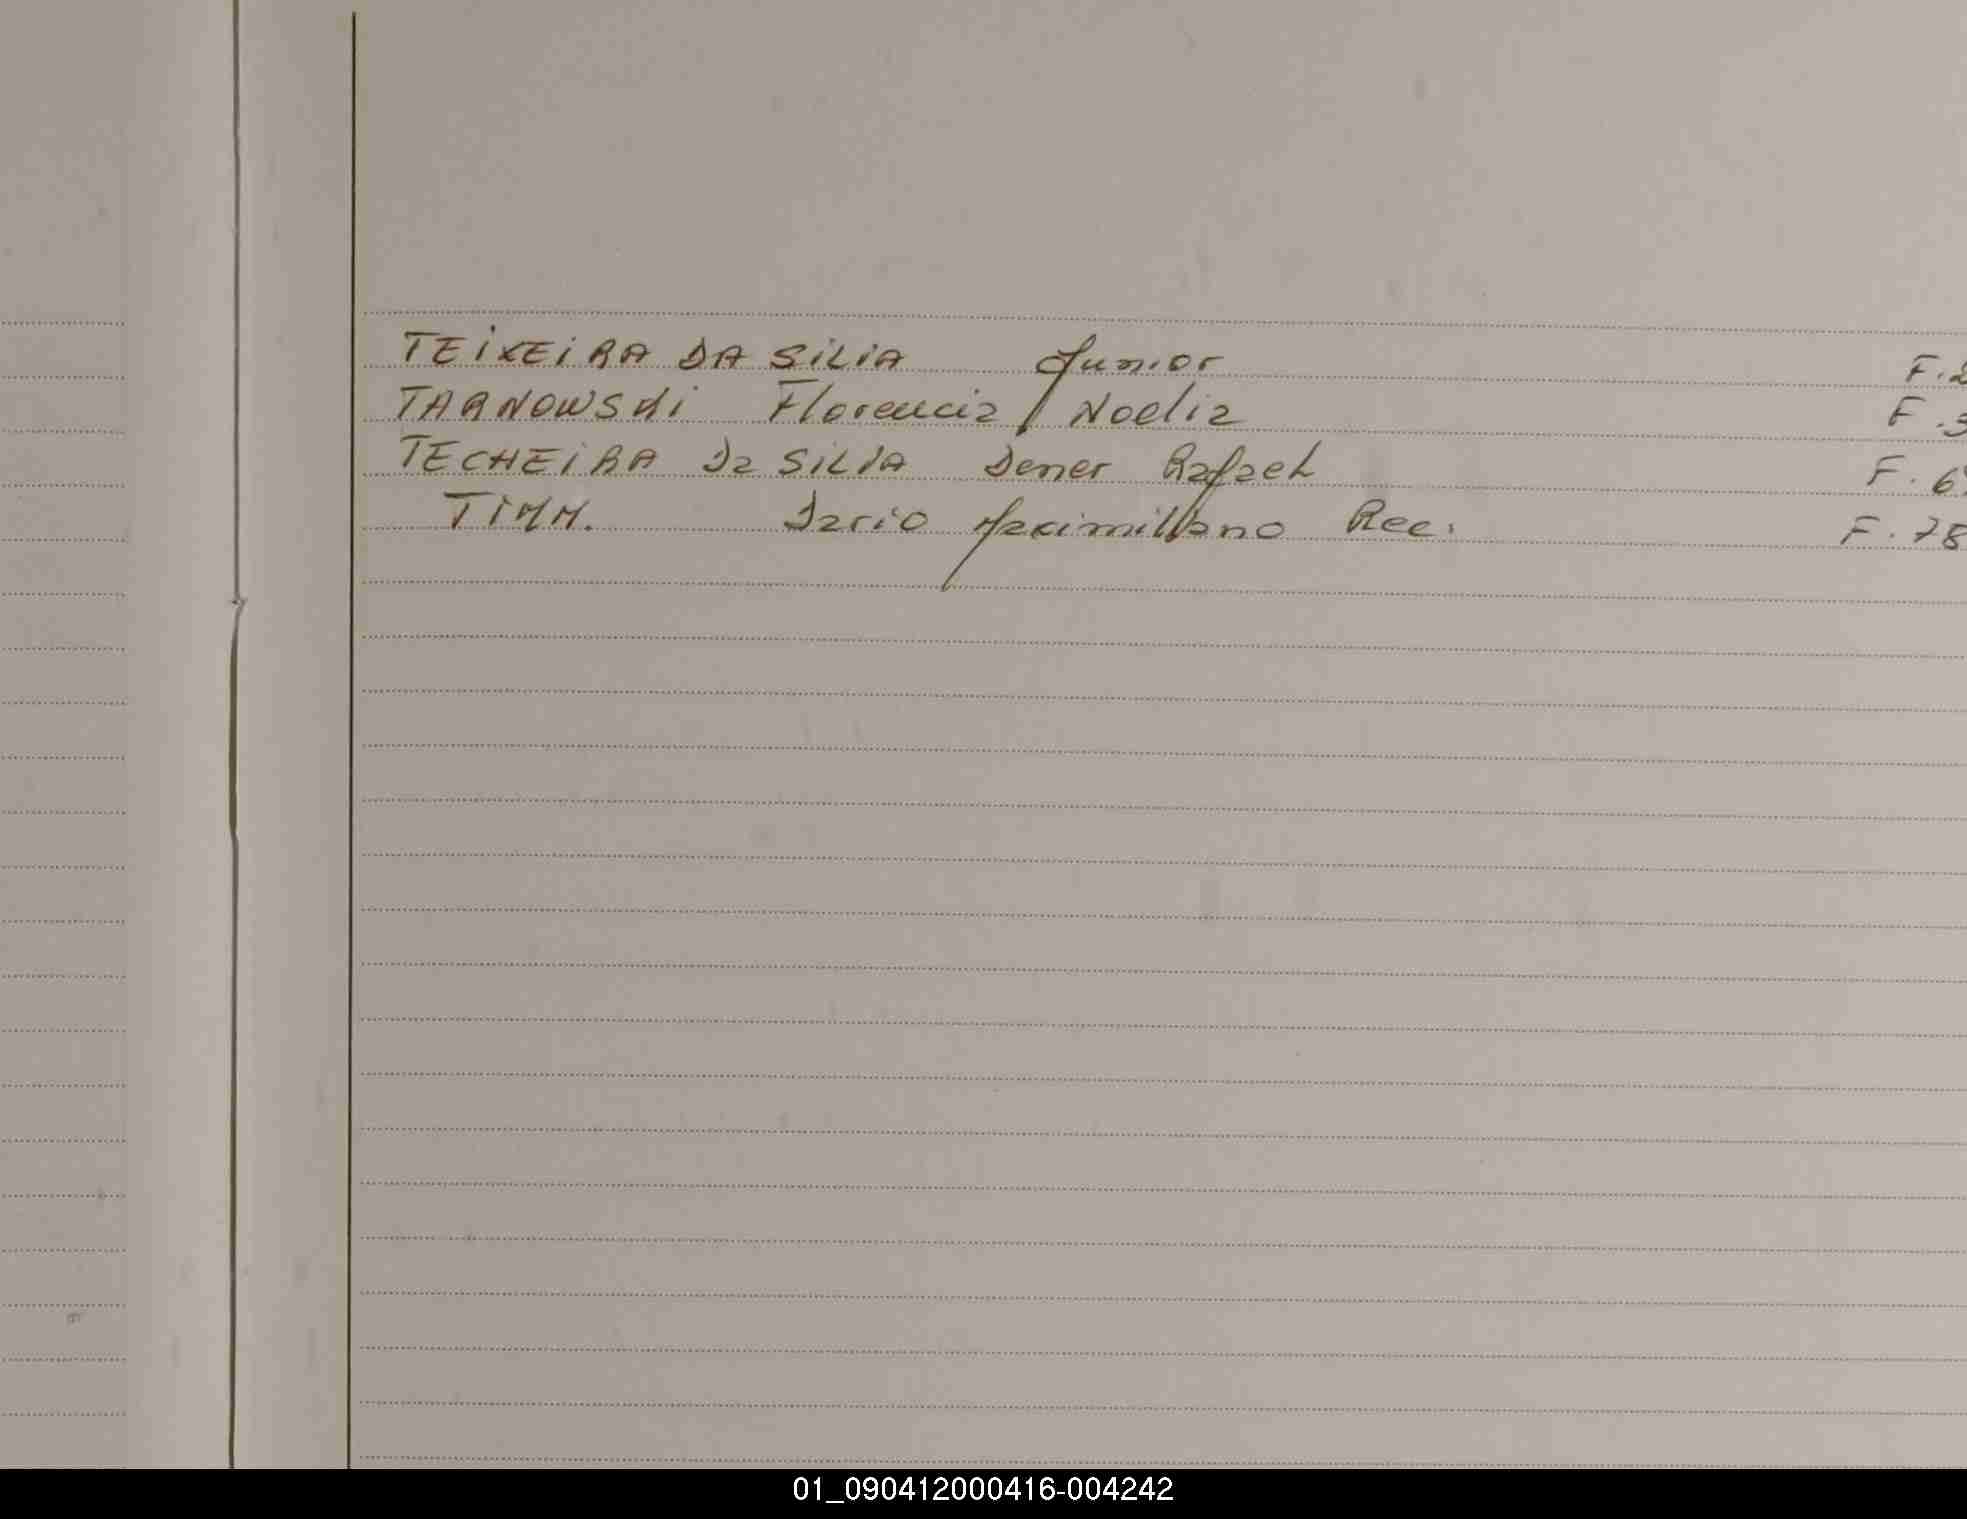 TEIXEIRA DA SILVA Junior F.2
TARNOWSKI Florencia Noelia F.3
TECHEIRA Da SILVA Dener Rafael F.6
TIMM. Dario Maximiliano Rec. F.78
01_090412000416-004242